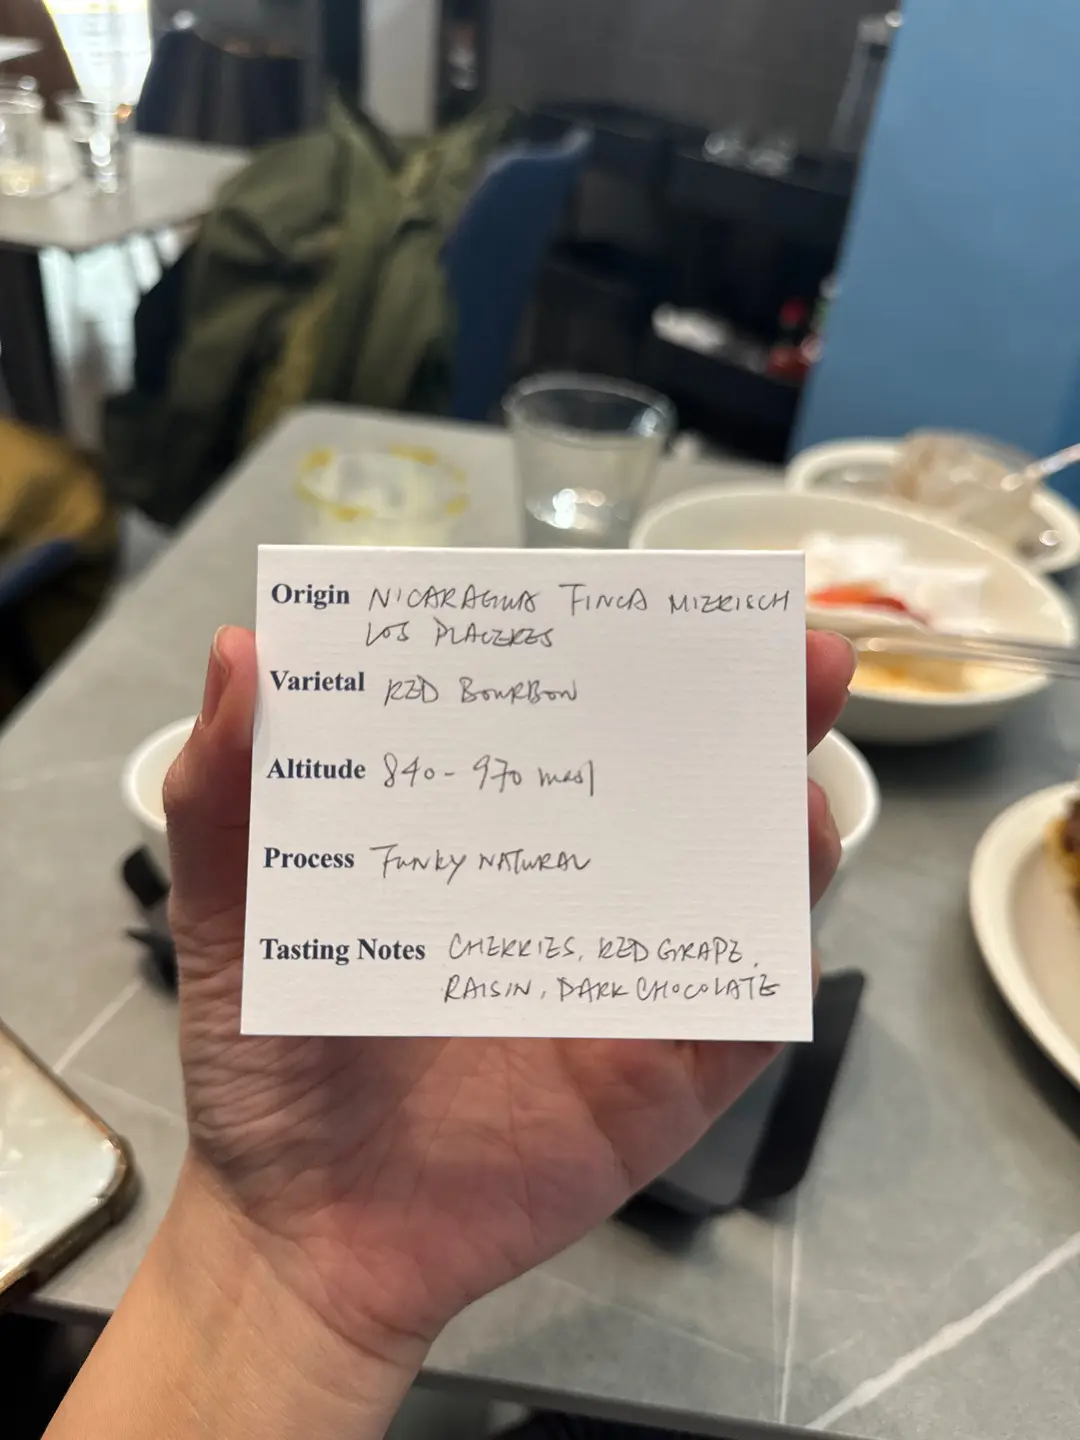 Origin NICARAGUA FINCA MIERISCH
LOS PLACERES
Varietal RED BOURBON
Altitude 840 - 970 masl
Process FUNKY NATURAL
Tasting Notes CHERRIES, RED GRAPE,
RAISIN, DARK CHOCOLATE